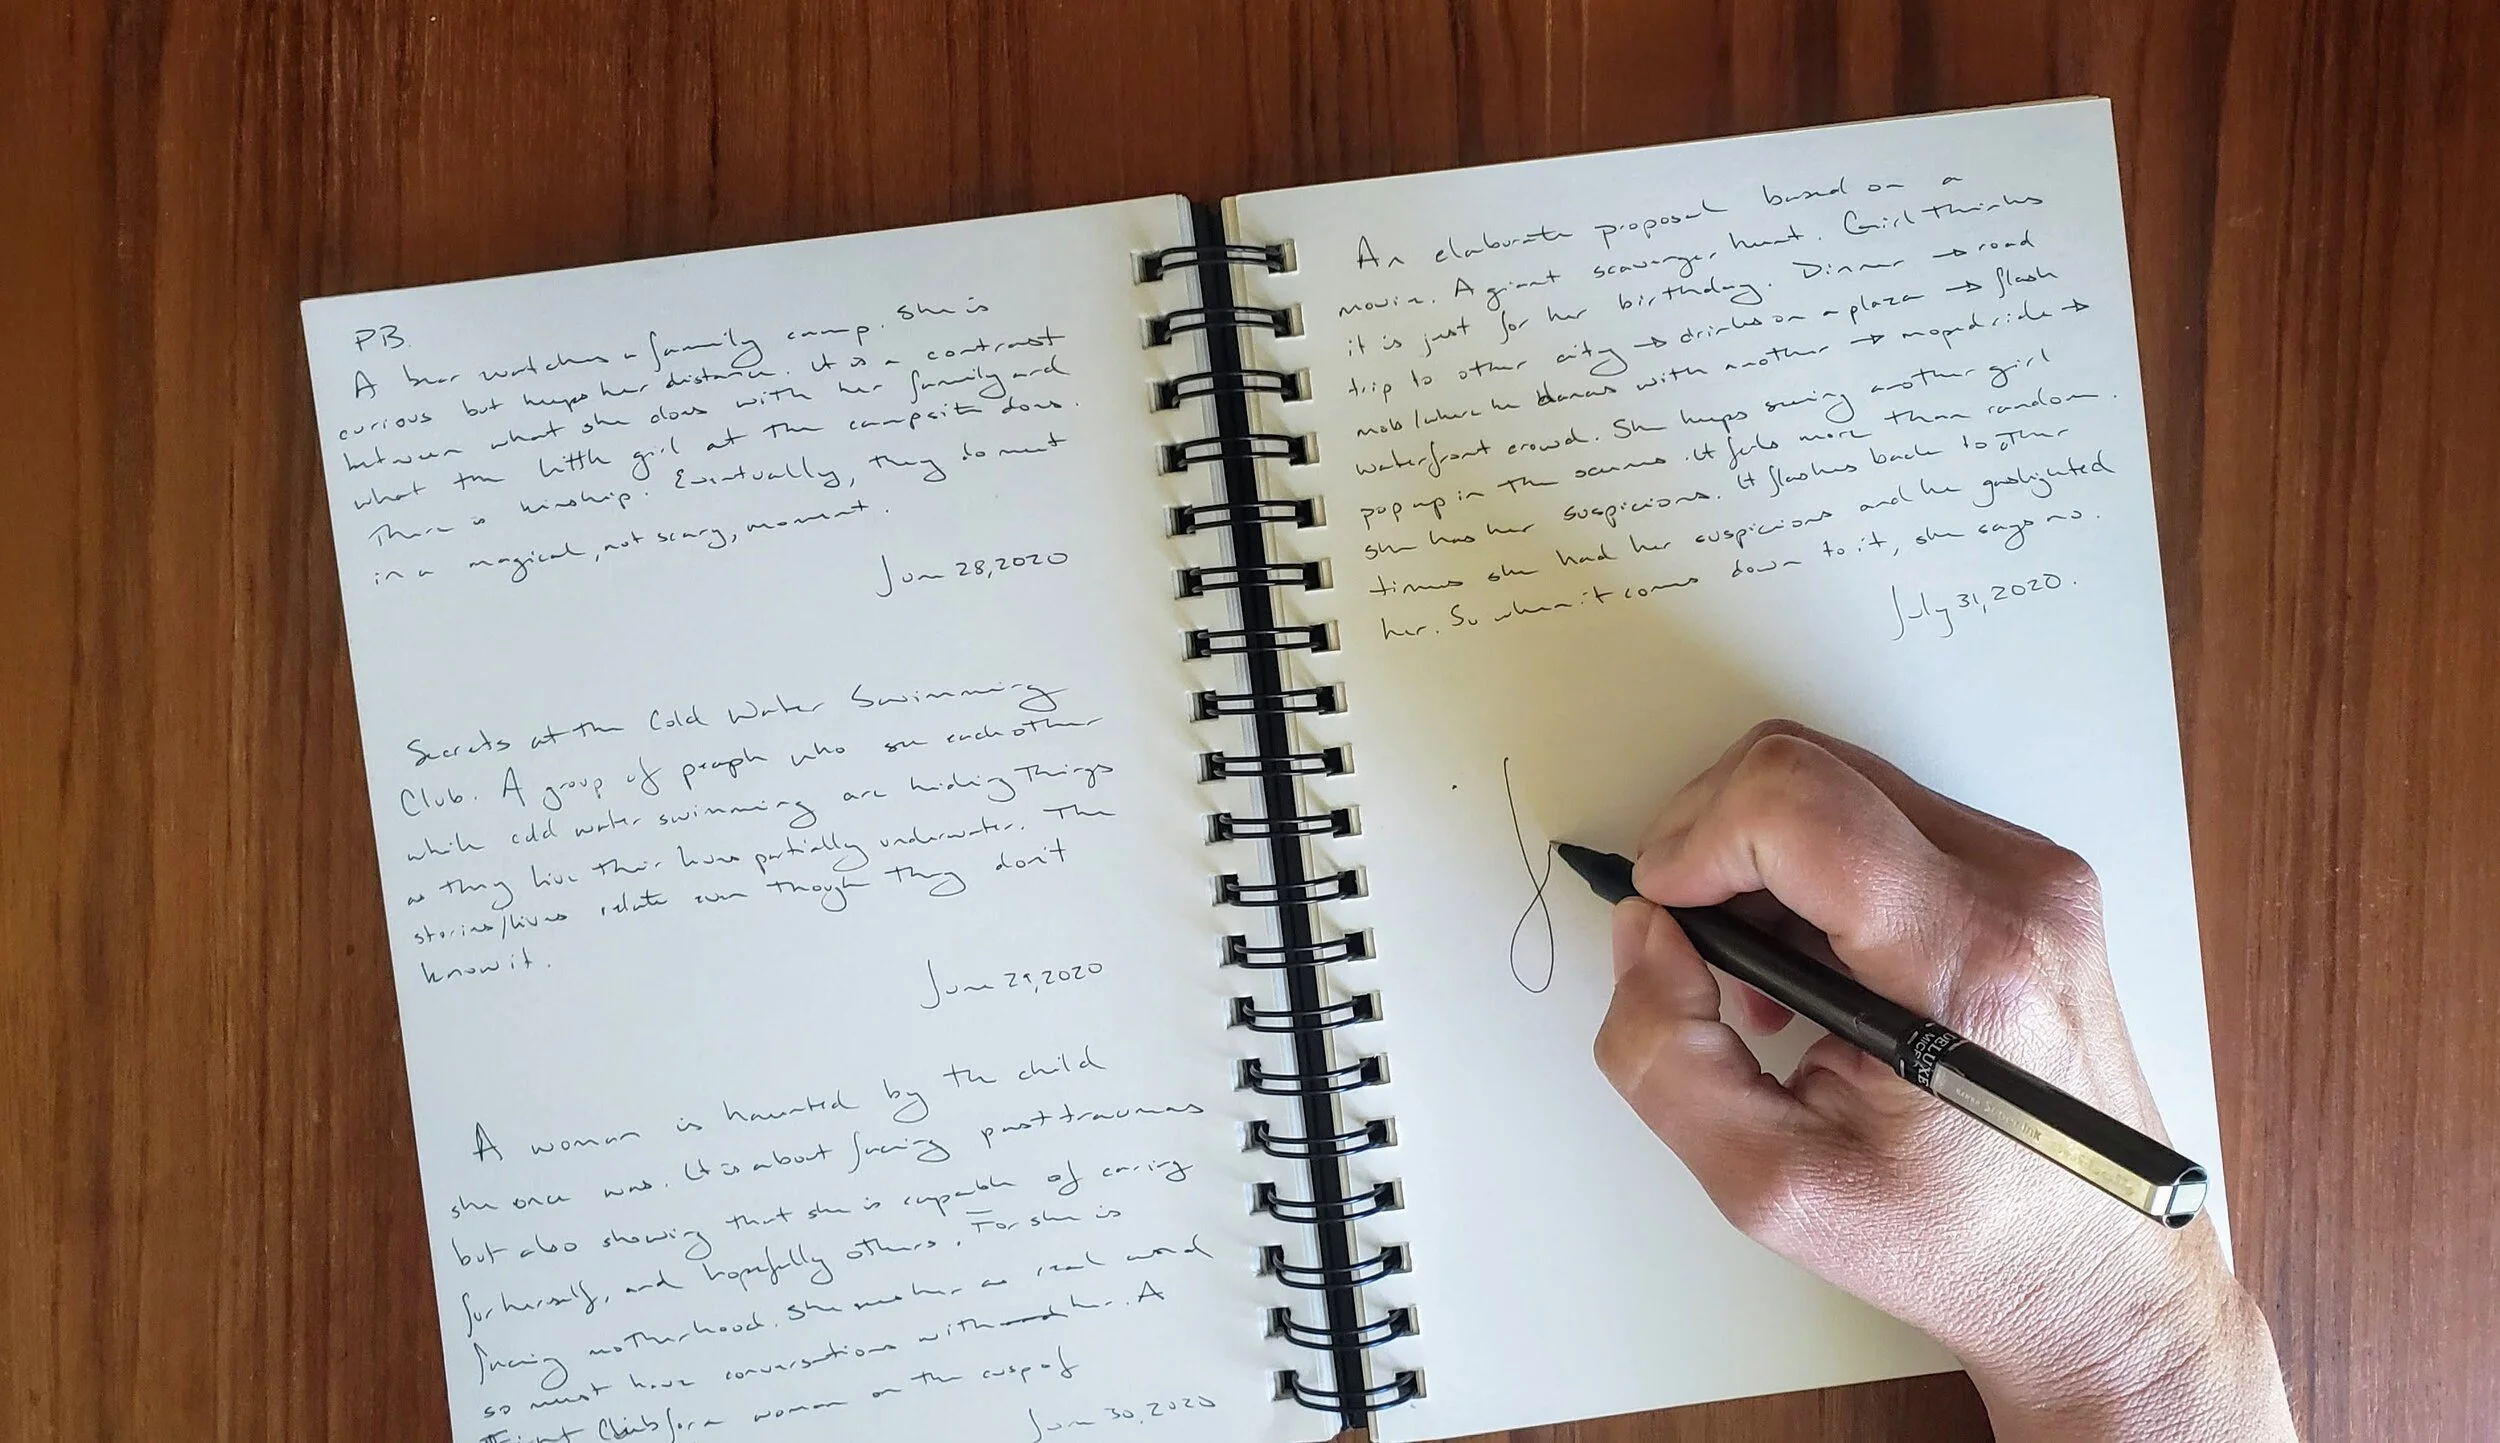 PB.
A bear watches a family camp. She is
curious but keeps her distance. It is a contrast
between what she does with her family and
what the little girl at the campsite does.
There is kinship. Eventually, they do meet
in a magical, not scary, moment.
June 28, 2020
Secrets at the Cold Water Swimming
Club. A group of people who see each other
while cold water swimming are hiding things
as they live their lives partially underwater. The
stories/lives relate even though they don't
know it.
June 29, 2020
A woman is haunted by the child
she once was. It is about facing past traumas
but also showing that she is capable of caring
for herself, and hopefully others. For she is
facing motherhood. She sees her as real and
so must have conversations with her. A
for a woman on the cusp of
June 30, 2020
An elaborate proposal based on a
movie. A giant scavenger hunt. Girl thinks
it is just for her birthday. Dinner → road
trip to other city → drinks on a plaza → flash
mob/where he dances with another → moped ride →
waterfront crowd. She keeps seeing another girl
pop up in the scenes. It feels more than random.
She has her suspicions. It flashes back to other
times she had her suspicions and he gaslighted
her. So when it comes down to it, she says no.
July 31, 2020.
DELUXE
MICRO